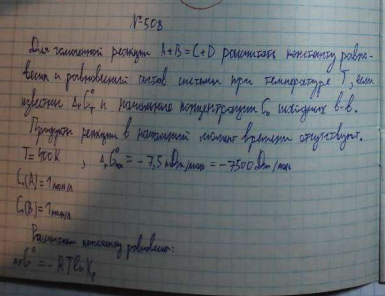 №508
Для гомогенной реакции A+B=C+D рассчитать константу равно-
весия и равновесный состав системы при температуре T, если
известны ΔrG°T и начальные концентрации C₀ исходных в-в.
Продукты реакции в начальный момент времени отсутствуют.
T=400K, ΔrG°400 = -7,5 кДж/моль = -7500 Дж/моль
C₀(A)=1моль/л
C₀(B)=1моль/л
константу равновесия:
ΔrG° = -RTlnKp